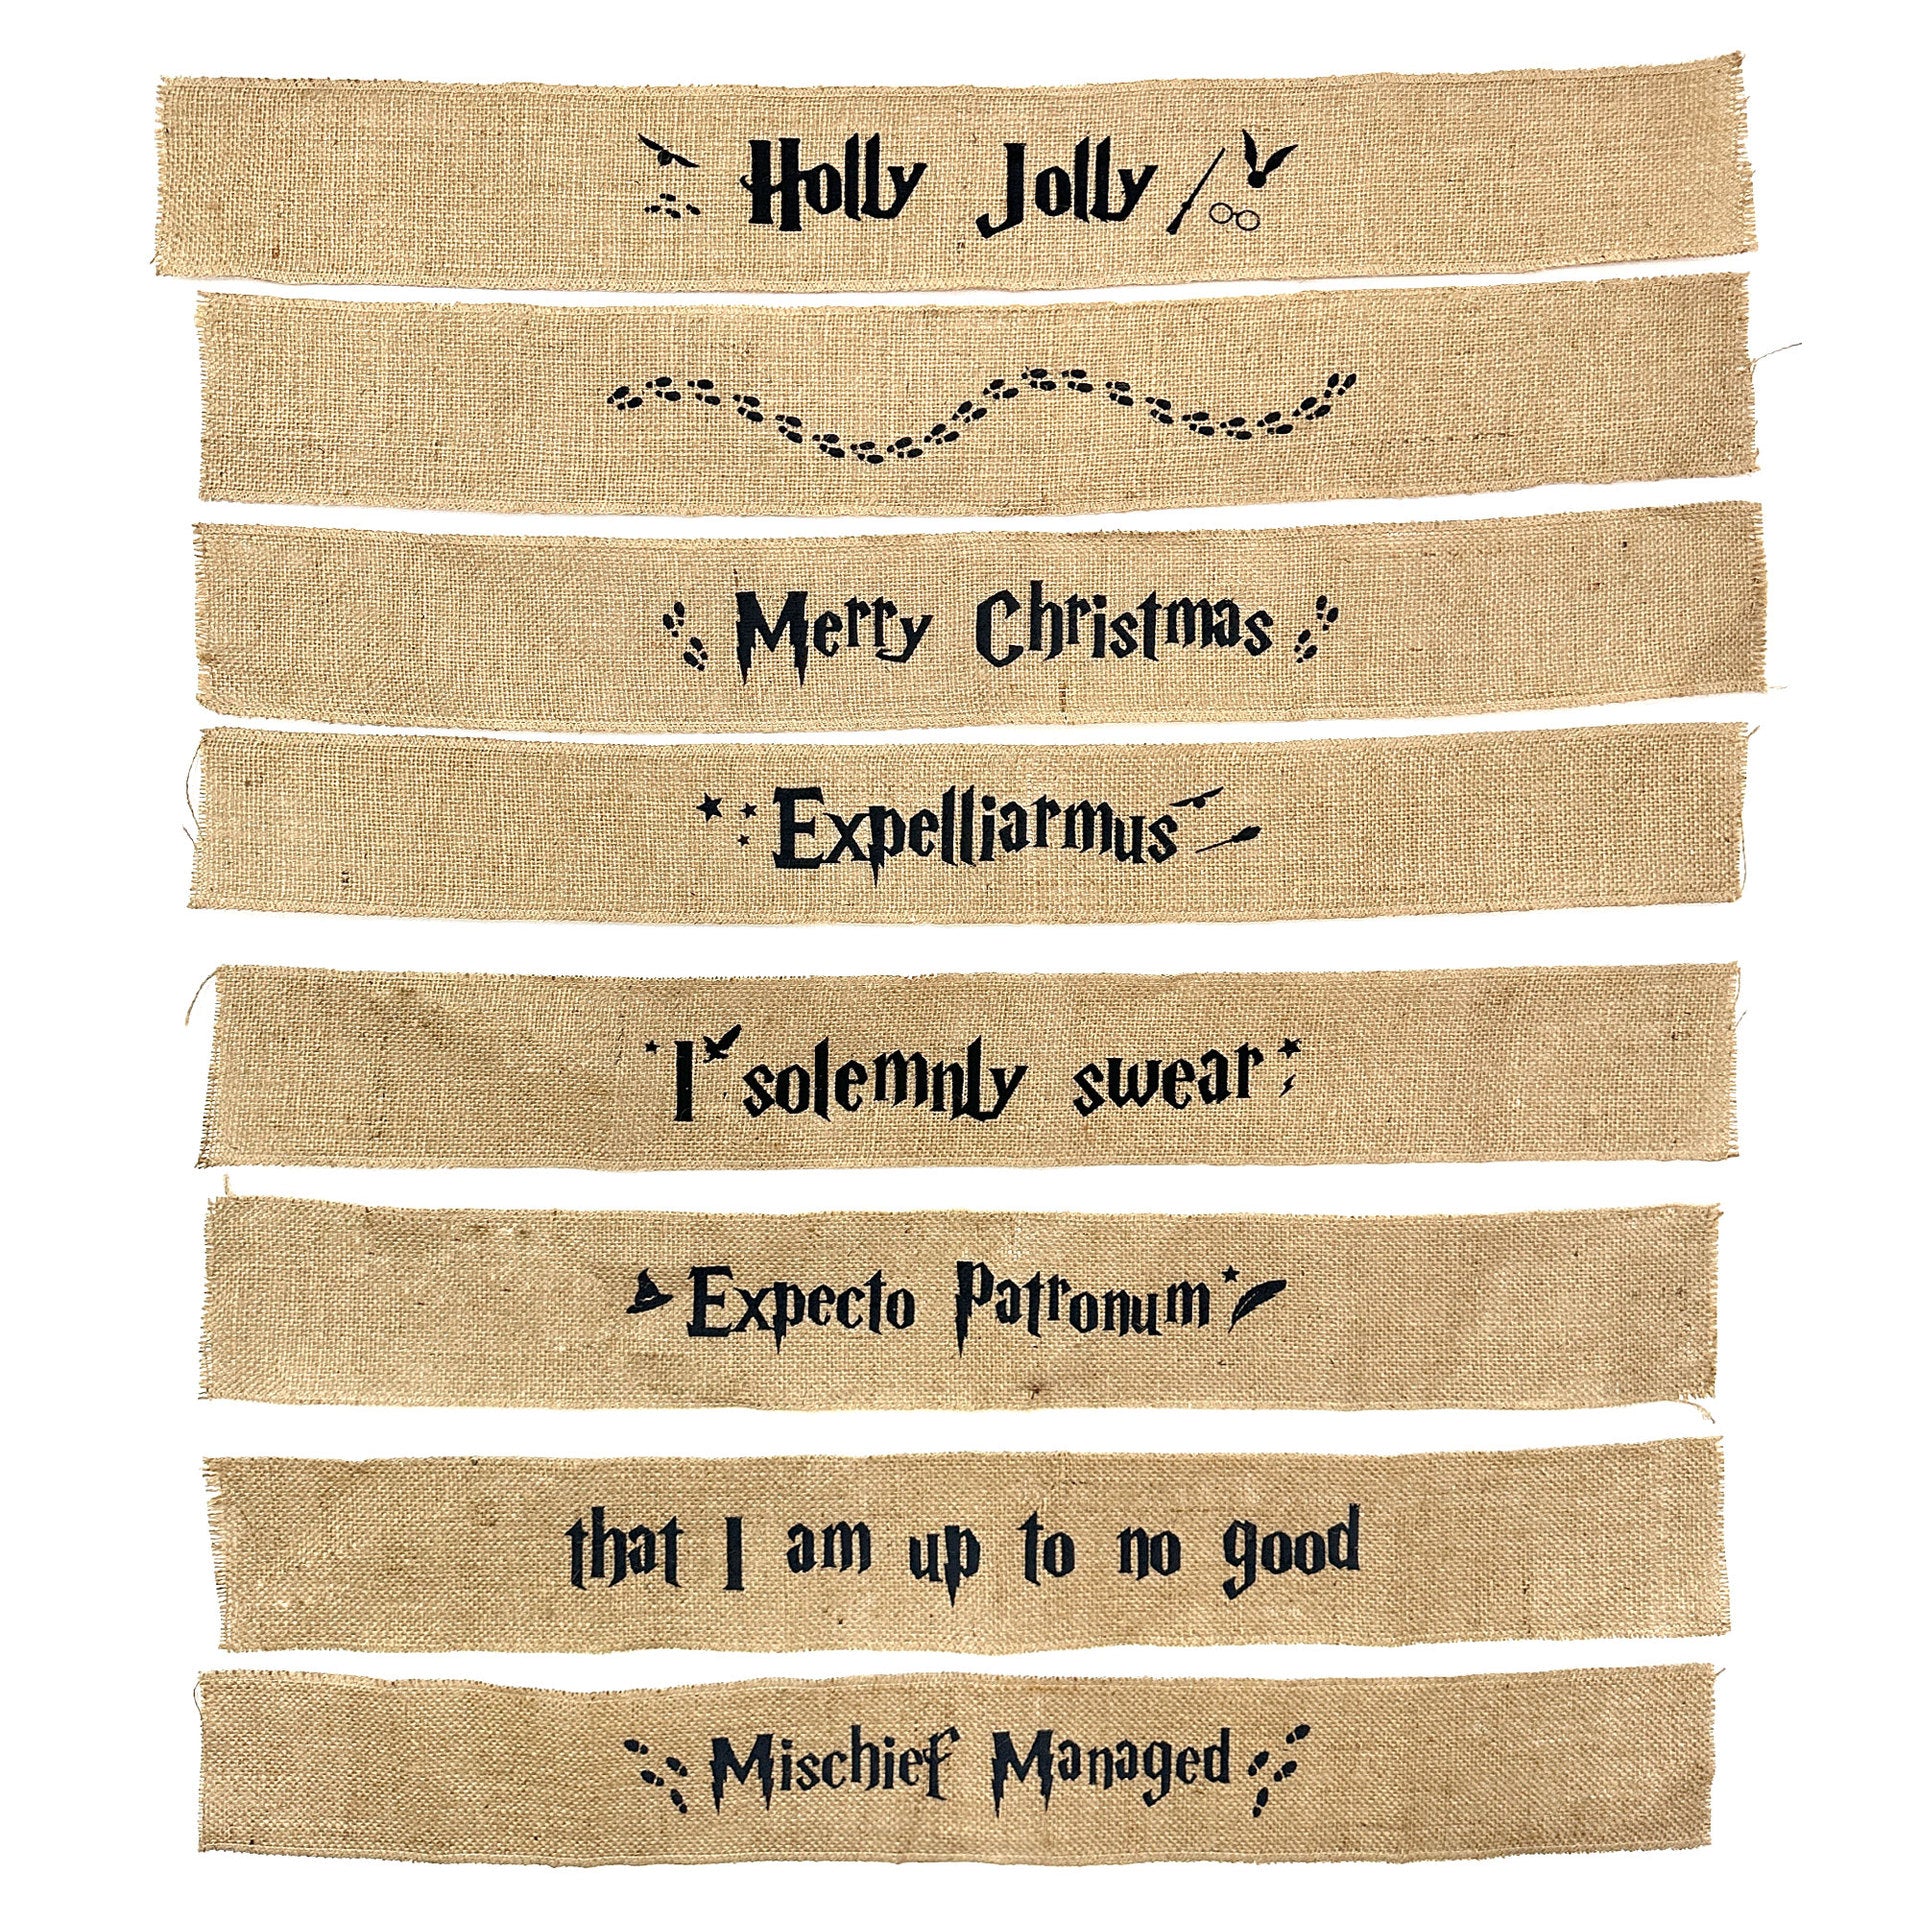 Holly Jolly
Merry Christmas
Expelliarmus
I solemnly swear
Expecto Patronum
that I am up to no good
Mischief Managed